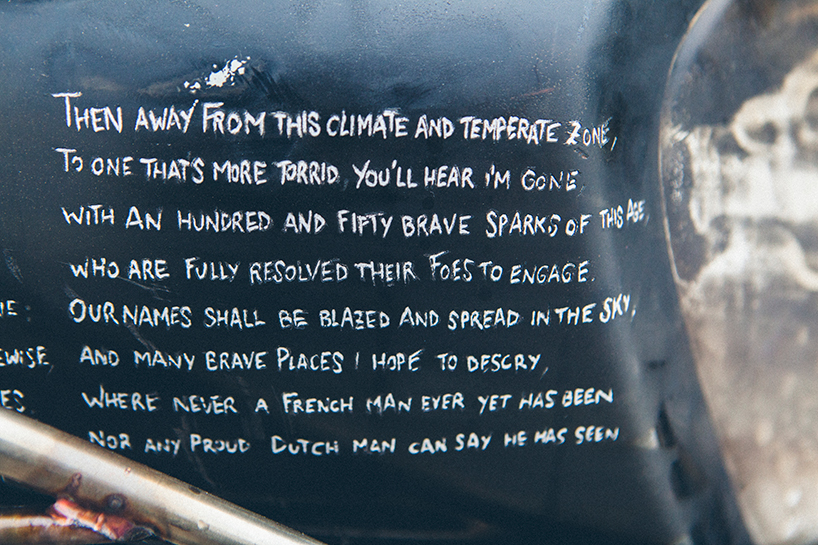 THEN AWAY FROM THIS CLIMATE AND TEMPERATE ZONE,
TO ONE THAT'S MORE TORRID YOU'LL HEAR I'M GONE
WITH AN HUNDRED AND FIFTY BRAVE SPARKS OF THIS AGE,
WHO ARE FULLY RESOLVED THEIR FOES TO ENGAGE.
OUR NAMES SHALL BE BLAZED AND SPREAD IN THE SKY,
AND MANY BRAVE PLACES I HOPE TO DESCRY,
WHERE NEVER A FRENCH MAN EVER YET HAS BEEN
NOR ANY PROUD DUTCH MAN CAN SAY HE HAS SEEN